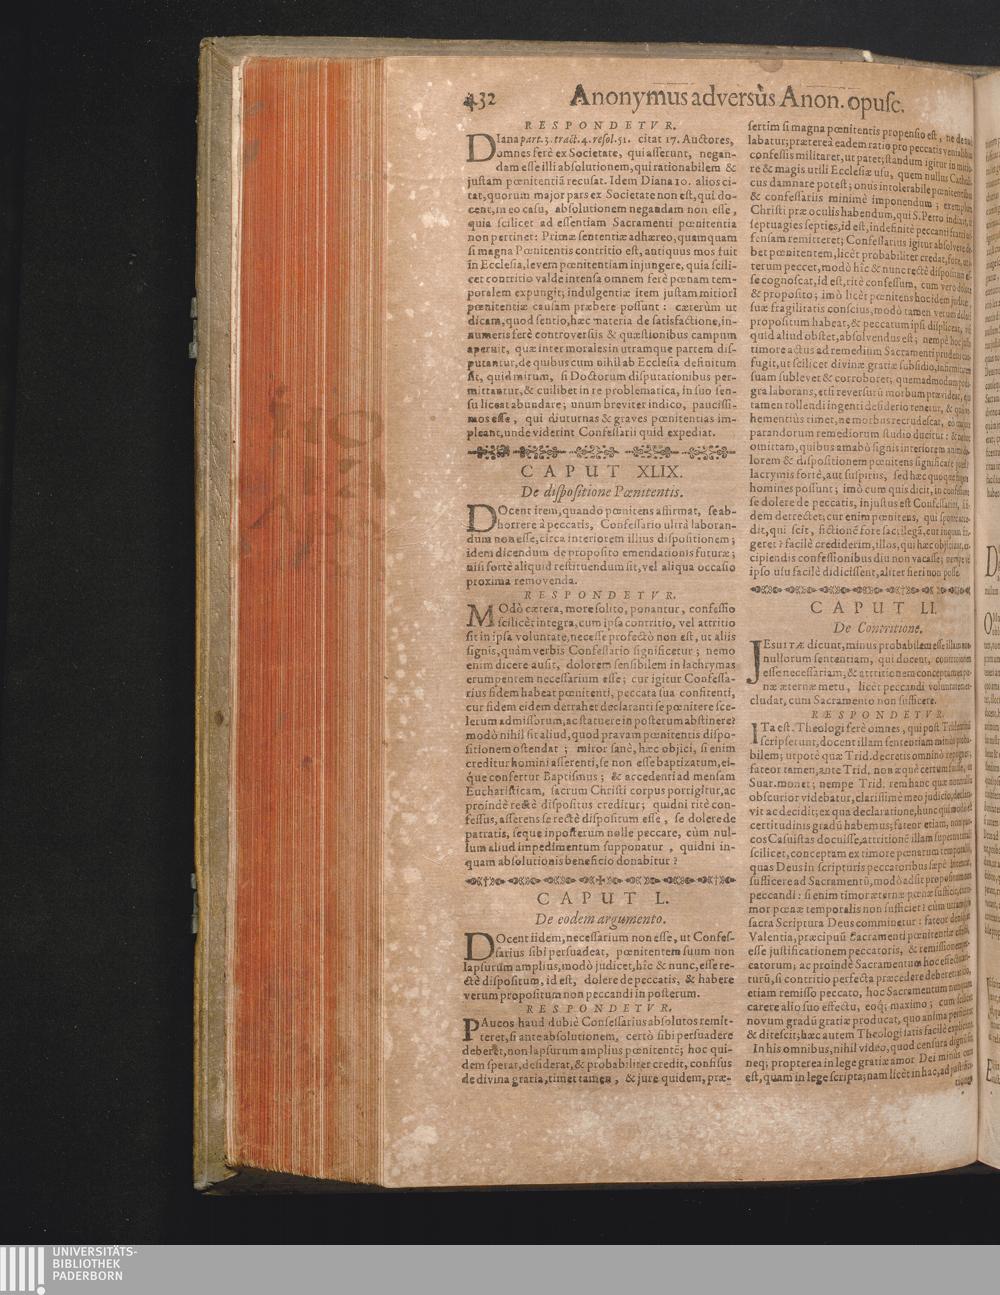 432 Anonymus adversùs Anon. opusc.
RESPONDETVR.
DIana part. 3. tract. 4. resol. 51. citat 17. Auctores,
omnes ferè ex Societate, qui asserunt, negan-
dam esse illi absolutionem, qui rationabilem &
justam pœnitentiã recusat. Idem Diana 10. alios ci-
tat, quorum major pars ex Societate non est, qui do-
cent, in eo casu, absolutionem negandam non esse,
quia scilicet ad essentiam Sacramenti pœnitentia
non pertinet: Primæ sententiæ adhæreo, quamquam
si magna Pœnitentis contritio est, antiquus mos fuit
in Ecclesia, levem pœnitentiam injungere, quia scili-
cet contritio valde intensa omnem ferè pœnam tem-
poralem expungit; indulgentiæ item justam mitiori
pœnitentiæ causam præbere possunt: cæterùm ut
dicam, quod sentio, hæc materia de satisfactione, in-
numeris ferè controversiis & quæstionibus campum
aperuit, quæ inter morales in utramque partem dis-
putantur, de quibus cum nihil ab Ecclesia definitum
sit, quid mirum, si Doctorum disputationibus per-
mittantur, & cuilibet in re problematica, in suo sen-
su liceat abundare; unum breviter indico, paucissi-
mos esse, qui diuturnas & graves pœnitentias im-
pleant, unde viderint Confessarii quid expediat.
CAPUT XLIX.
De dispositione Pœnitentis.
DOcent item, quando pœnitens affirmat, se ab-
horrere à peccatis, Confessario ultrà laboran-
dum non esse, circa interiorem illius dispositionem;
idem dicendum de proposito emendationis futuræ;
nisi fortè aliquid restituendum sit, vel aliqua occasio
proxima removenda.
RESPONDETVR.
MOdò cætera, more solito, ponantur, confessio
scilicèt integra, cum ipsa contritio, vel attritio
sit in ipsa voluntate, necesse profectò non est, ut aliis
signis, quàm verbis Confessario significetur; nemo
enim dicere ausit, dolorem sensibilem in lachrymas
erumpentem necessarium esse; cur igitur Confessa-
rius fidem habeat pœnitenti, peccata sua confitenti,
cur fidem eidem detrahet declaranti se pœnitere sce-
lerum admissorum, ac statuere in posterum abstinere?
modò nihil sit aliud, quod pravam pœnitentis dispo-
sitionem ostendat; miror sanè, hæc objici, si enim
creditur homini asserenti, se non esse baptizatum, ei-
que confertur Baptismus; & accedenti ad mensam
Eucharisticam, sacrum Christi corpus porrigitur, ac
proindè rectè dispositus creditur; quidni ritè con-
fessus, asserens se rectè dispositum esse, se dolere de
patratis, seque in posterum nolle peccare, cùm nul-
lum aliud impedimentum supponatur, quidni in-
quam absolutionis beneficio donabitur?
CAPUT L.
De eodem argumento.
DOcent iidem, necessarium non esse, ut Confes-
sarius sibi persuadeat, pœnitentem suum non
lapsurum amplius, modò judicet, hîc & nunc, esse re-
ctè dispositum, id est, dolere de peccatis, & habere
verum propositum non peccandi in posterum.
RESPONDETVR.
PAucos haud dubiè Confessarius absolutos remit-
teret, si ante absolutionem, certò sibi persuadere
deberet, non lapsurum amplius pœnitentẽ; hoc qui-
dem sperat, desiderat, & probabiliter credit, confisus
de divina gratia, timet tamen, & jure quidem, præ-
sertim si magna pœnitentis propensio est,
labatur; præterea eadem ratio pro peccatis venialibus
confessis militaret, ut patet; standum igitur in
re & magis utili Ecclesiæ usu, quem nullus
cus damnare potest; onus intolerabile pœnitentibus
& confessariis minimè imponendum;
Christi præ oculis habendum, qui S. Petro
septuagies septies, id est, indefinitè peccanti
fensam remitteret; Confessarius igitur absolvere
bet pœnitentem, licèt probabiliter credat, fore,
terum peccet, modò hîc & nunc rectè dispositum
se cognoscat, id est, ritè confessum, cum vero dolore
& proposito; imò licèt pœnitens hoc idem judicet,
suæ fragilitatis conscius, modò tamen verum dolorem
propositum habeat, & peccatum ipsi displiceat,
quid aliud obstet, absolvendus est; nempè hoc
timore actus ad remedium Sacramenti prudens con-
fugit, ut scilicet divinæ gratiæ subsidio, infirmitatem
suam sublevet & corroboret; quemadmodum
gra laborans, etsi reversurũ morbum prævideat,
tamen tollendi ingenti desiderio tenetur, &
hementiùs timet, ne morbus recrudescat,
parandorum remediorum studio ducitur:
omittam, quibus amabò signis interiorem
lorem & dispositionem pœnitens significare
lacrymis fortè, aut suspiriis, sed hæc quoque
homines possunt; imò cum quis dicit, in
se dolere de peccatis, injustus est Confessarius,
dem detrectet; cur enim pœnitens, qui
dit, qui scit, fictionẽ fore sacrilegã, eur
geret? facilè crediderim, illos, qui hæc objiciunt,
cipiendis confessionibus diu non vacasse;
ipso usu facilè didicissent, aliter fieri non posse.
CAPUT LI.
De Contritione.
JESUITÆ dicunt, minus probabilem esse illam
nullorum sententiam, qui docent, contritionem
esse necessariam, & attritionem conceptam
næ æternæ metu, licèt peccandi voluntatem
cludat, cum Sacramento non sufficere.
RESPONDETVR.
ITa est. Theologi ferè omnes, qui post
scripserunt, docent illam sententiam
bilem; utpotè quæ Trid. decretis omninò
fateor tamen, ante Trid. non æquè certum fuisse,
Suar. monet; nempe Trid. rem hanc quæ
obscurior videbatur, clarissimè meo judicio,
vit ac decidit; ex qua declaratione, hunc
certitudinis gradũ habemus; fateor etiam,
cos Casuistas docuisse, attritionẽ illam
scilicet, conceptam ex timore pœnarum temporalium,
quas Deus in scripturis peccatoribus sæpè
sufficere ad Sacramentũ, modò adsit propositum
peccandi: si enim timor æternæ pœnæ sufficit,
mor pœnæ temporalis non sufficiet? cùm
sacra Scriptura Deus comminetur: fateor
Valentia, præcipuũ Sacramenti pœnitentiæ
esse justificationem peccatoris, & remissionem
catorum; ac proindè Sacramentum hoc
turũ, si contritio perfecta præcedere deberet
etiam remisso peccato, hoc Sacramentum nunquam
carere alio suo effectu, eoq; maximo; cum
novum gradũ gratiæ producat, quo anima
& ditescit; hæc autem Theologi satis facilè
In his omnibus, nihil video, quod censura
neq; propterea in lege gratiæ amor Dei minùs
est, quam in lege scripta; nam licèt in hac, ad
UNIVERSITÄTS-
BIBLIOTHEK
PADERBORN